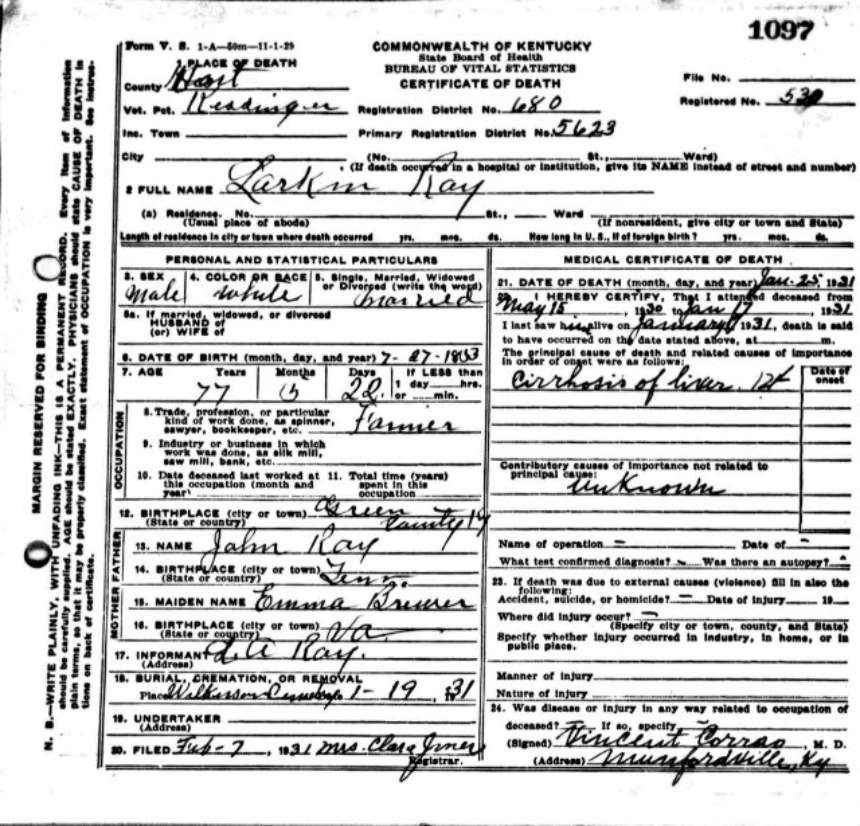 1097
Form V. S. 1-A—50m—11-1-29
COMMONWEALTH OF KENTUCKY
State Board of Health
BUREAU OF VITAL STATISTICS
CERTIFICATE OF DEATH
1 PLACE OF DEATH
County Hart
Vot. Pct.
Inc. Town
City
Registration District No. 680
Primary Registration District No. 5623
File No.
Registered No.
(No. St., Ward)
(If death occurred in a hospital or institution, give its NAME instead of street and number)
2 FULL NAME Larkin Ray
(a) Residence. No. St., Ward
(Usual place of abode) (If nonresident, give city or town and State)
Length of residence in city or town where death occurred yrs. mos. ds. How long in U. S., if of foreign birth? yrs. mos. ds.
PERSONAL AND STATISTICAL PARTICULARS
3. SEX 4. COLOR OR RACE 5. Single, Married, Widowed
or Divorced (write the word)
Male White Married
5a. If married, widowed, or divorced
HUSBAND of
(or) WIFE of
6. DATE OF BIRTH (month, day, and year) 7-27-
7. AGE Years Months Days If LESS than
1 day hrs.
or min.
77 5 22
OCCUPATION
8. Trade, profession, or particular
kind of work done, as spinner,
sawyer, bookkeeper, etc. Farmer
9. Industry or business in which
work was done, as silk mill,
saw mill, bank, etc.
10. Date deceased last worked at
this occupation (month and
year)
11. Total time (years)
spent in this
occupation
12. BIRTHPLACE (city or town) Green
(State or country) County Ky
FATHER
13. NAME John Ray
14. BIRTHPLACE (city or town) Tenn
(State or country)
MOTHER
15. MAIDEN NAME Emma Brewer
16. BIRTHPLACE (city or town) Va
(State or country)
17. INFORMANT Ray.
(Address)
18. BURIAL, CREMATION, OR REMOVAL
Place Wilkerson Cemetery 1-19 1931
19. UNDERTAKER
(Address)
20. FILED Feb-7, 1931 Mrs. Clara Jones
Registrar.
MEDICAL CERTIFICATE OF DEATH
21. DATE OF DEATH (month, day, and year) Jan. 1931
22. I HEREBY CERTIFY, That I attended deceased from
May 15, 1930 to Jan 17, 1931
I last saw him alive on January 1931, death is said
to have occurred on the date stated above, at m.
The principal cause of death and related causes of importance
in order of onset were as follows:
Date of
onset
Cirrhosis of liver.
Contributory causes of importance not related to
principal cause:
Unknown
Name of operation — Date of -
What test confirmed diagnosis? Was there an autopsy?
23. If death was due to external causes (violence) fill in also the
following:
Accident, suicide, or homicide? — Date of injury 19
Where did injury occur? —
(Specify city or town, county, and State)
Specify whether injury occurred in industry, in home, or in
public place.
Manner of injury
Nature of injury
24. Was disease or injury in any way related to occupation of
deceased? If so, specify
(Signed) Vincent Corrao, M. D.
(Address) Munfordville, Ky
MARGIN RESERVED FOR BINDING
N. B.—WRITE PLAINLY, WITH UNFADING INK—THIS IS A PERMANENT RECORD. Every item of information
should be carefully supplied. AGE should be stated EXACTLY. PHYSICIANS should state CAUSE OF DEATH in
plain terms, so that it may be properly classified. Exact statement of OCCUPATION is very important. See instruc-
tions on back of certificate.